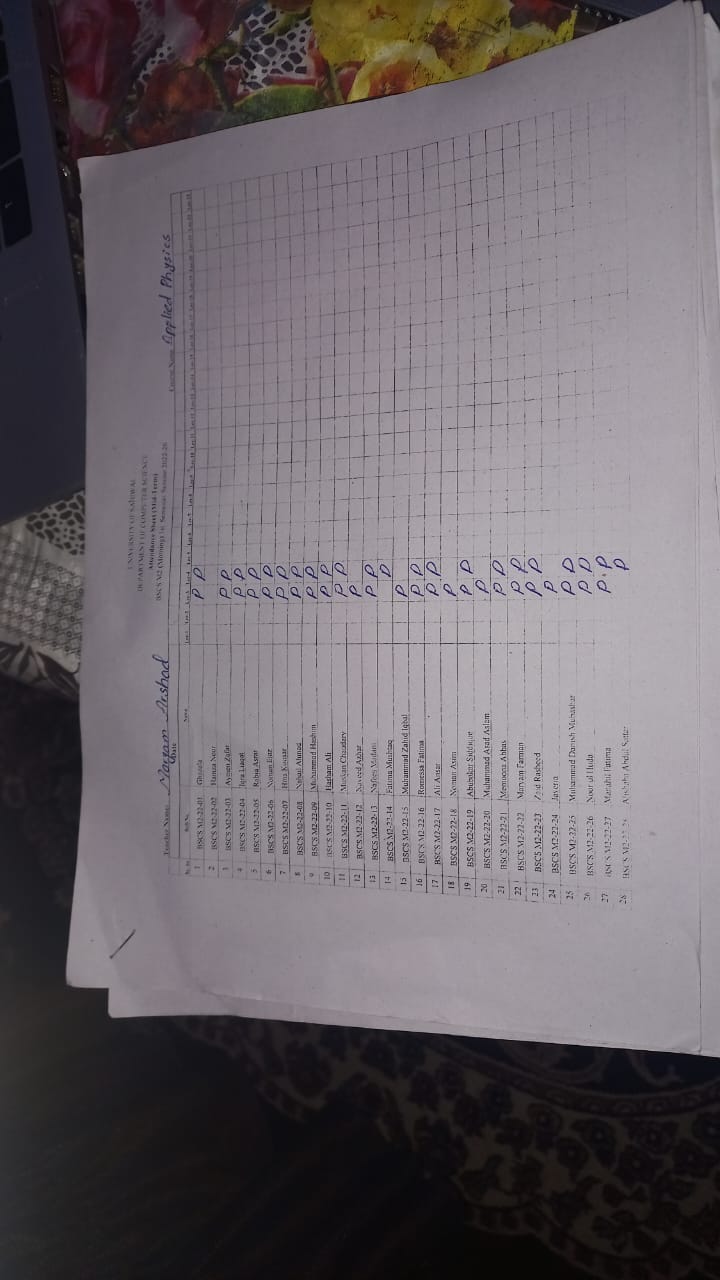 UNIVERSITY OF SAHIWAL
DEPARTMENT OF COMPUTER SCIENCE
Attendance Sheet (Mid-Term)
BSCS M2 (Morning) 1st Semester Session 2022-26
Teacher Name: Maryam Arshad Course Name: Applied Physics
Date
Sr.No Roll No. Name
1 BSCS M2-22-01 P P
2 BSCS M2-22-02 Hamza Noor
3 BSCS M2-22-03 Ayman Zafar P P
4 BSCS M2-22-04 Iqra Liaqat P P
5 BSCS M2-22-05 Rabia Asrar P P
6 BSCS M2-22-06 P P
7 BSCS M2-22-07 Hina Kausar P P
8 BSCS M2-22-08 Nabail Ahmed P P
9 BSCS M2-22-09 Muhammad Hashim P P
10 BSCS M2-22-10 Hasham Ali P P
11 BSCS M2-22-11 Muskan Chaudary P P
12 BSCS M2-22-12 Naveed Azhar P
13 BSCS M2-22-13 Nafees P P
14 BSCS M2-22-14 Fatima Mushtaq P
15 BSCS M2-22-15 Muhammad Zahid Iqbal P
16 BSCS M2-22-16 Romessa Fatima P P
17 BSCS M2-22-17 Ali Ansar P P
18 BSCS M2-22-18 Noman Asim P
19 BSCS M2-22-19 Abubakar Siddique P P
20 BSCS M2-22-20 Muhammad Asad Aslam P
21 BSCS M2-22-21 Memoona Abbas P P
22 BSCS M2-22-22 Maryam Farman P P
23 BSCS M2-22-23 Zaid Rasheed P P
24 BSCS M2-22-24 Javeria P
25 BSCS M2-22-25 Muhammad Danish Mubashar P P
26 BSCS M2-22-26 Noor ul Huda P P
27 BSCS M2-22-27 Manahil Fatima P P
28 BSCS M2-22-28 Abdul Sattar P